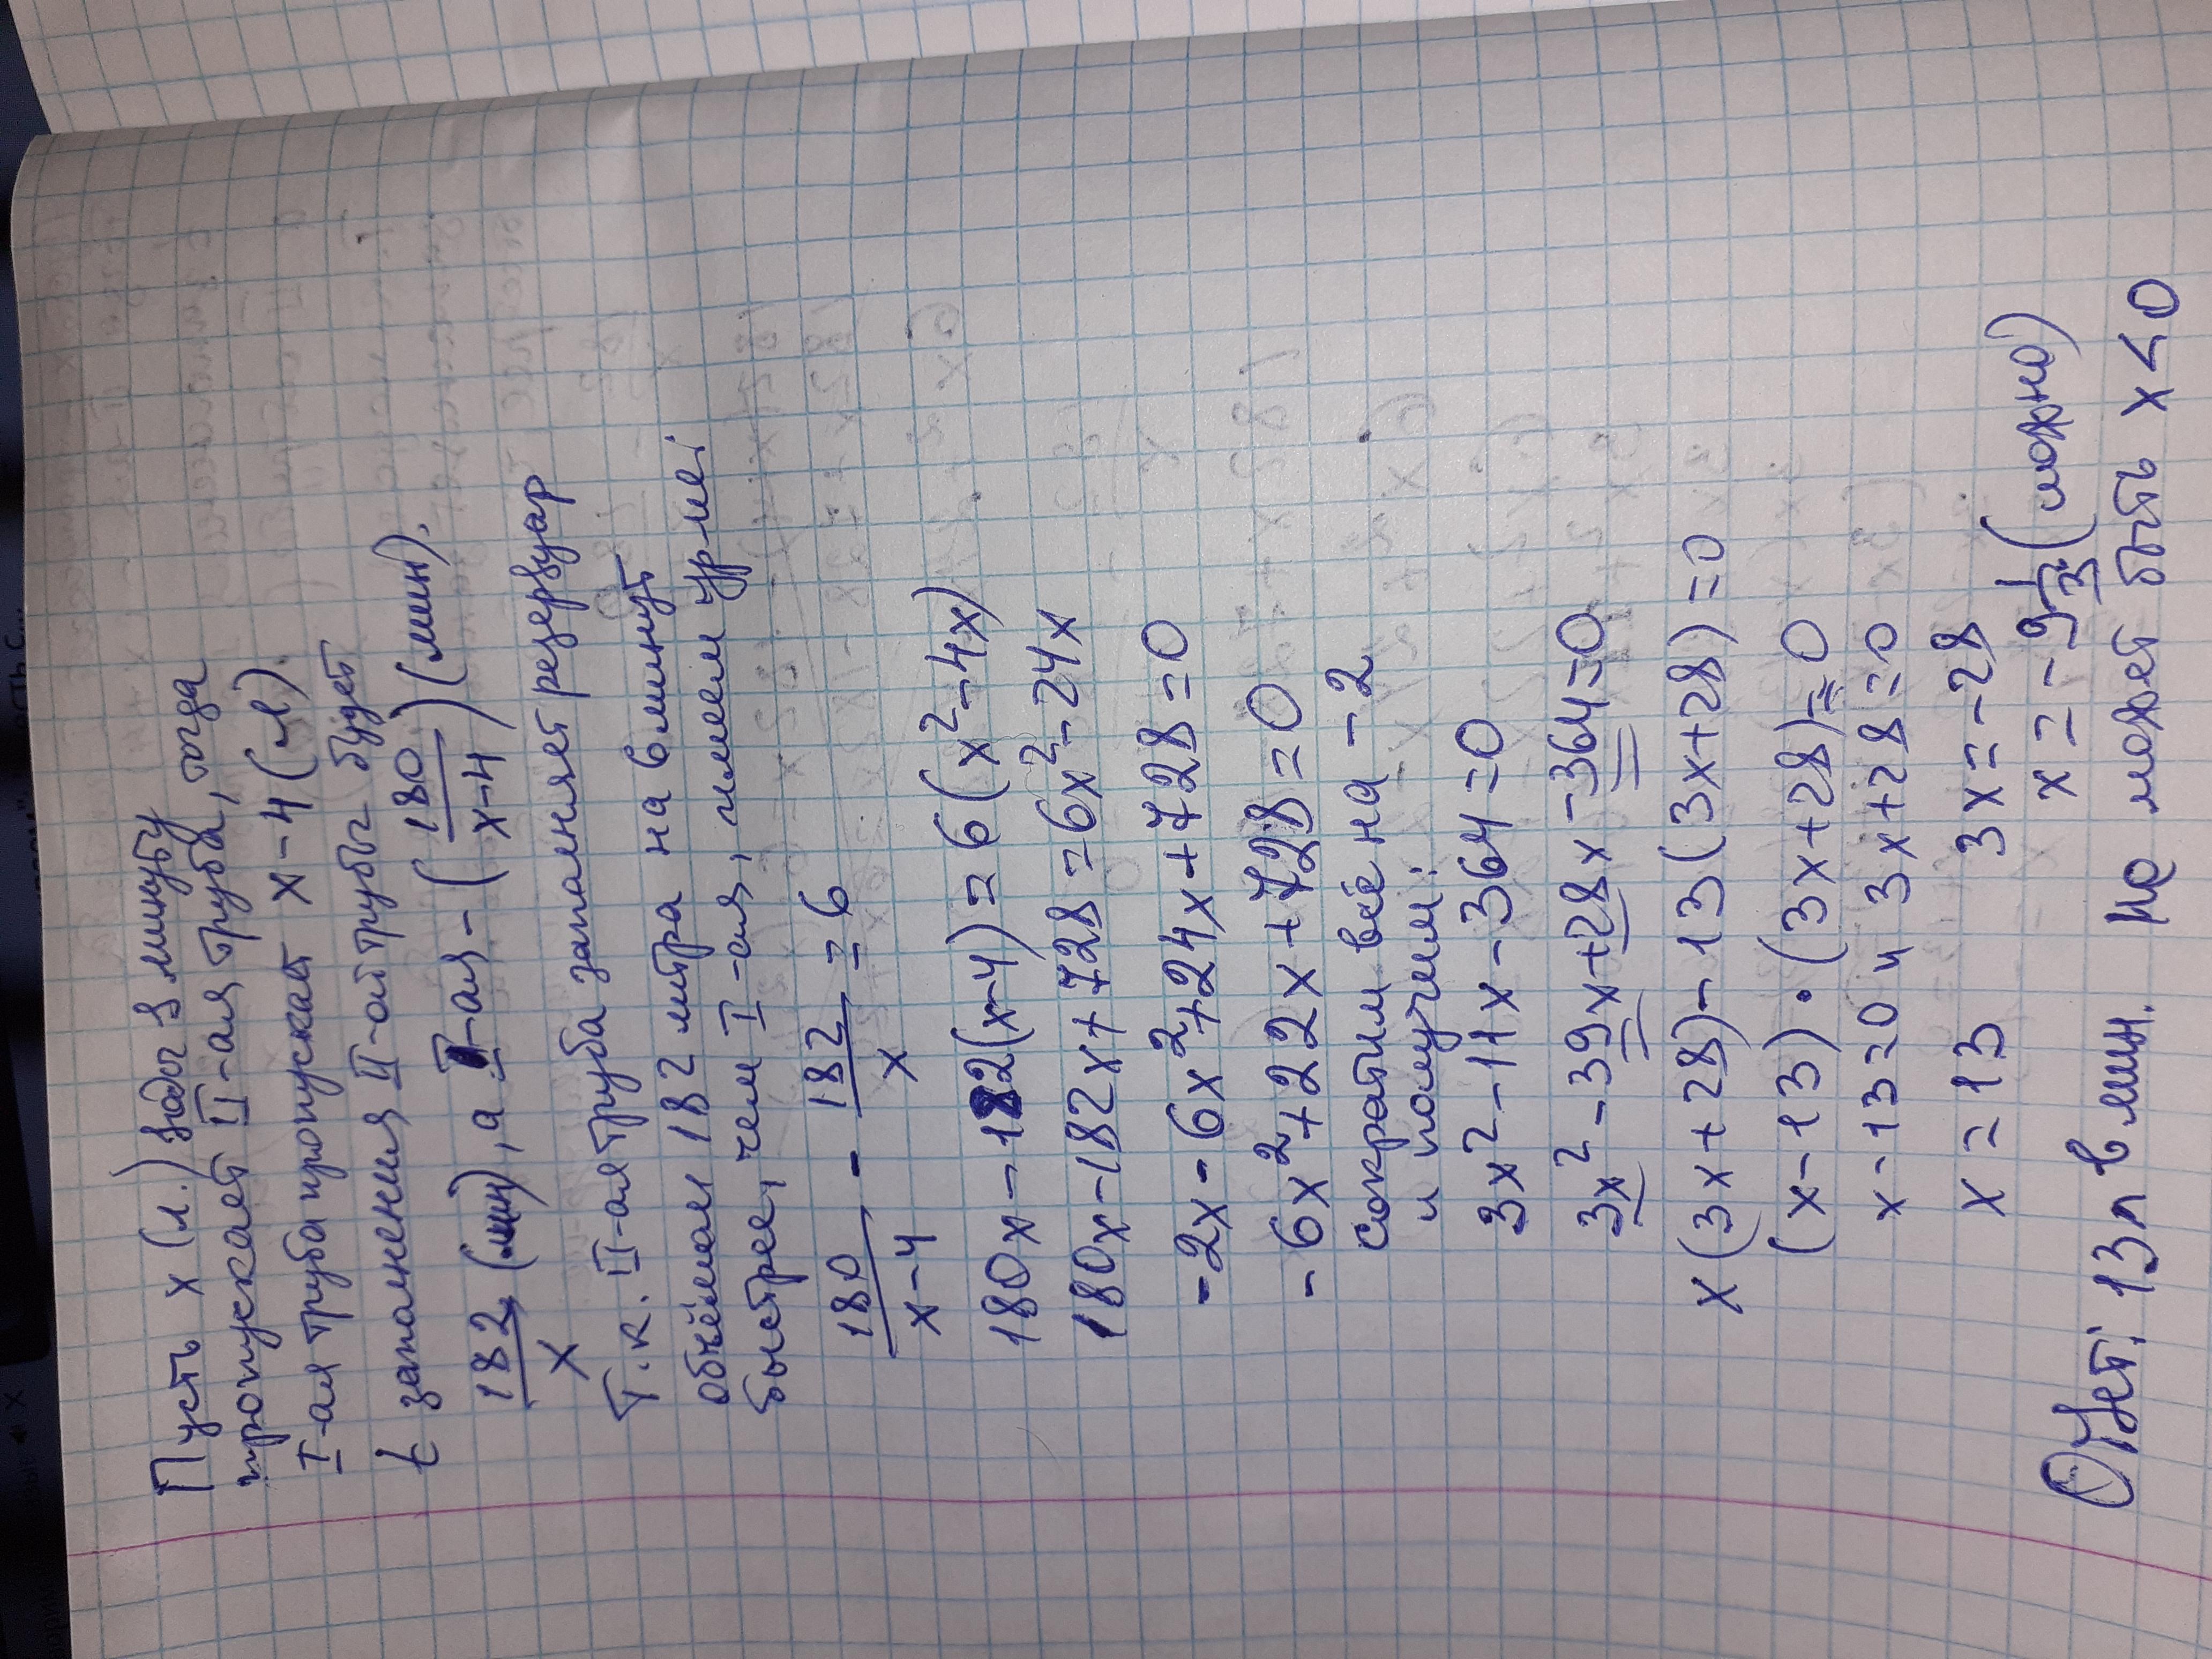 Пусть x (л.) воды в минуту
пропускает II-ая труба, тогда
I-ая труба пропускает x-4 (л).
t заполнения II-ой трубы будет
182/x (мин), а I-ая - (180/x-4) (мин).
Т.к. II-ая труба заполняет резервуар
объёмом 182 литра на 6 минут
быстрее, чем I-ая, имеем ур-ие:
180/x-4 - 182/x = 6
180x-182(x-4)=6(x²-4x)
180x-182x+728=6x²-24x
-2x-6x²+24x+728=0
-6x²+22x+728=0
сократим всё на -2
и получим:
3x²-11x-364=0
3x²-39x+28x-364=0
x(3x+28)-13(3x+28)=0
(x-13)·(3x+28)=0
x-13=0 и 3x+28=0
x=13 3x=-28
x=-9 1/3 (можно)
Ответ: 13л в мин. Не может быть x<0